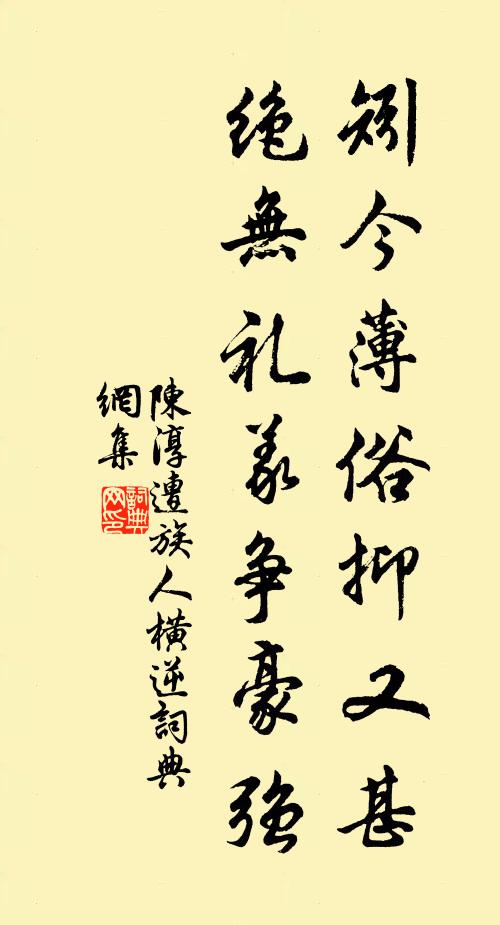 矧今薄俗抑又甚
絶無礼義争豪强
陳淳遭族人横逆詞典
網集
詞典
网印